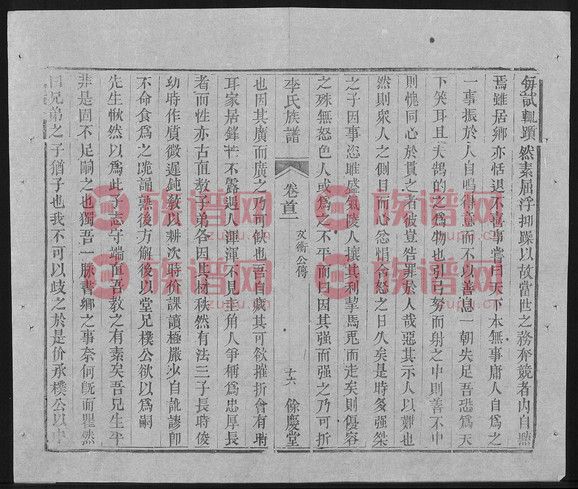 每試輒躓然素履浮抑躁以故當世之務奔競者內自
焉雖居鄉亦恬退不喜事嘗曰天下本無事庸人自爲之
一事振於人自鳴得意而不以善息一朝失足吾恐爲天
下笑耳且夫鵠的之爲物也引弓努而射之中則善不中
則愧同心於貴之者彼豈告罪於人哉惡其示人以難也
然則衆人之側目而心忿悁含怒之日久矣是時多强桀
之子因事恣睢盛氣凌人攘其利挐馬兎而走矣則優容
之殊無怒色人或爲之不平而曰因其强而强之乃可折
李氏族譜
卷首二
文衡公傳
十六
餘慶堂
也因其廣而廣之乃可缺也吾自蹶其可欲摧折會有時
耳家居鋒芒不露遇人渾渾不見圭角人爭稱爲忠厚長
者而性亦古直敎子弟各因其材秩然有法三子長時俊
幼時作質微遲鈍敎以耕次時价課讀極嚴少自訛謬卽
不命食爲之跪誦熟後方解後以堂兄樸公欲以爲嗣
先生愀然以爲此子志守端直吾敎之有素矣吾兄生平
非是固不足嗣之也獨吾一脈書鄉之事奈何旣而瞿然
曰兄弟之子猶子也我不可以歧之於是价承樸公以中
族谱网
zupu.cn